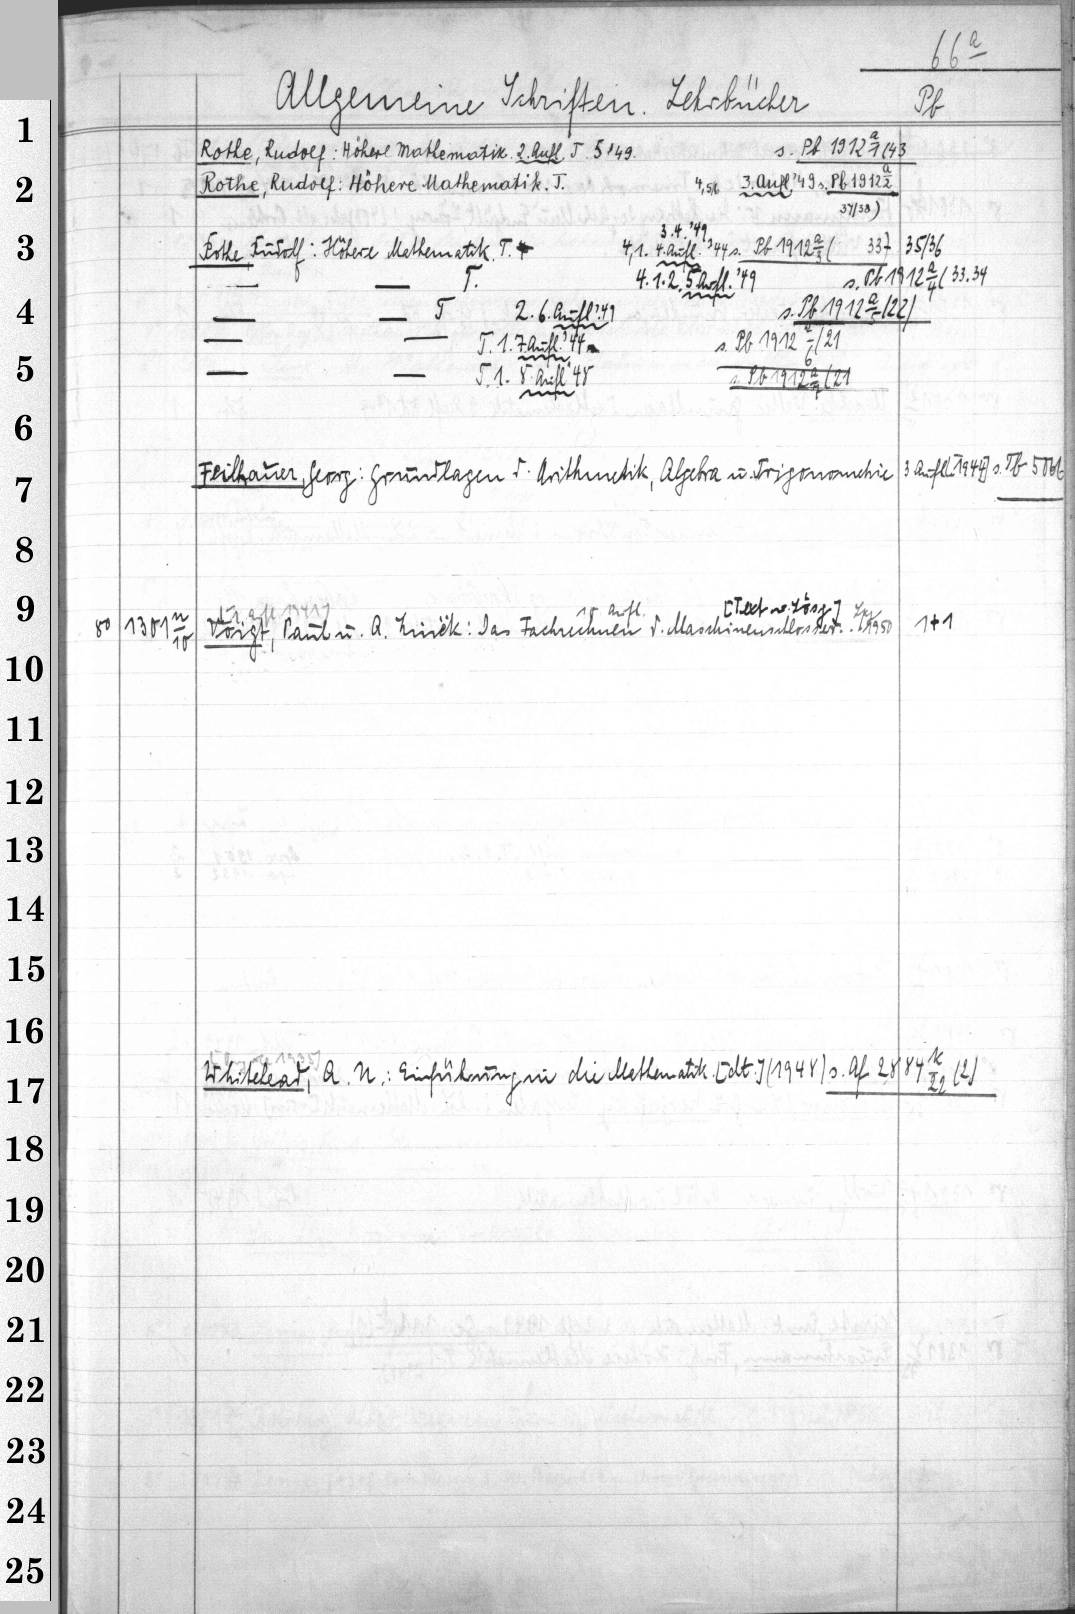 66a
Allgemeine Schriften. Lehrbücher Pb
1
Rothe, Rudolf: Höhere Mathematik. 2. Aufl. T. 5 '49. s. Pb 1912 a/1 (43
2
Rothe, Rudolf: Höhere Mathematik. T. 4,5,6 3. Aufl. '49 s. Pb 1912 a/2
37/38)
3.4. '49
3
Rothe, Rudolf: Höhere Mathematik. T. 4,1. 4. Aufl. '44 s. Pb 1912 a/3 ( 33) 35/36
— — T. 4.1.2. 5. Aufl. '49 s. Pb 1912 a/4 (33.34
4
— — T 2. 6. Aufl. '49 s. Pb 1912 a/5 (22)
— — T. 1. 7. Aufl. '44 s. Pb 1912 a/6 (21
5
— — T. 1. 8. Aufl. '48 s. Pb 1912 a/7 (21
6
7
Feilhauer, Georg: Grundlagen d. Arithmetik, Algebra u. Trigonometrie 3. Aufl. [1944] s.
8
9
18. Aufl. [Text u. Lösg]
80 1301 n/10 Voigt, Paul u. A. : Das Fachrechnen d. Maschinenschlosser. 1950 1+1
10
11
12
13
14
15
16
17
Whitehead, A. N.: Einführung in die Mathematik. [dt.] (1948) s. Af 2884 k/22 (2)
18
19
20
21
22
23
24
25